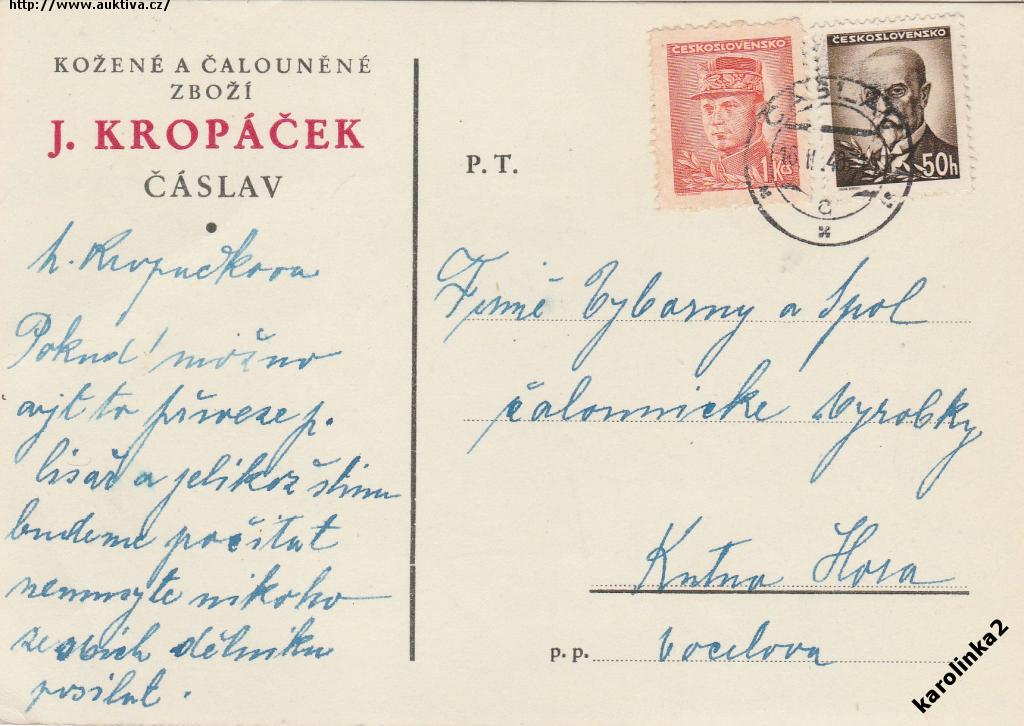 http://www.auktiva.cz/
KOŽENÉ A ČALOUNĚNÉ
ZBOŽÍ
J. KROPÁČEK
ČÁSLAV
h. Kropačkova
Pokud možno
to přiveze p.
lisař a jelikož
budeme počítat
nemusyte nikoho
ze svich dělniku
posilat.
ČESKOSLOVENSKO
1 Kčs
ČESKOSLOVENSKO
50h
ČÁSLAV
c
P. T.
Firmě Vyborny a Spol
čalounicke Vyrobky
Kutna Hora
p. p. Vocelova
karolinka2